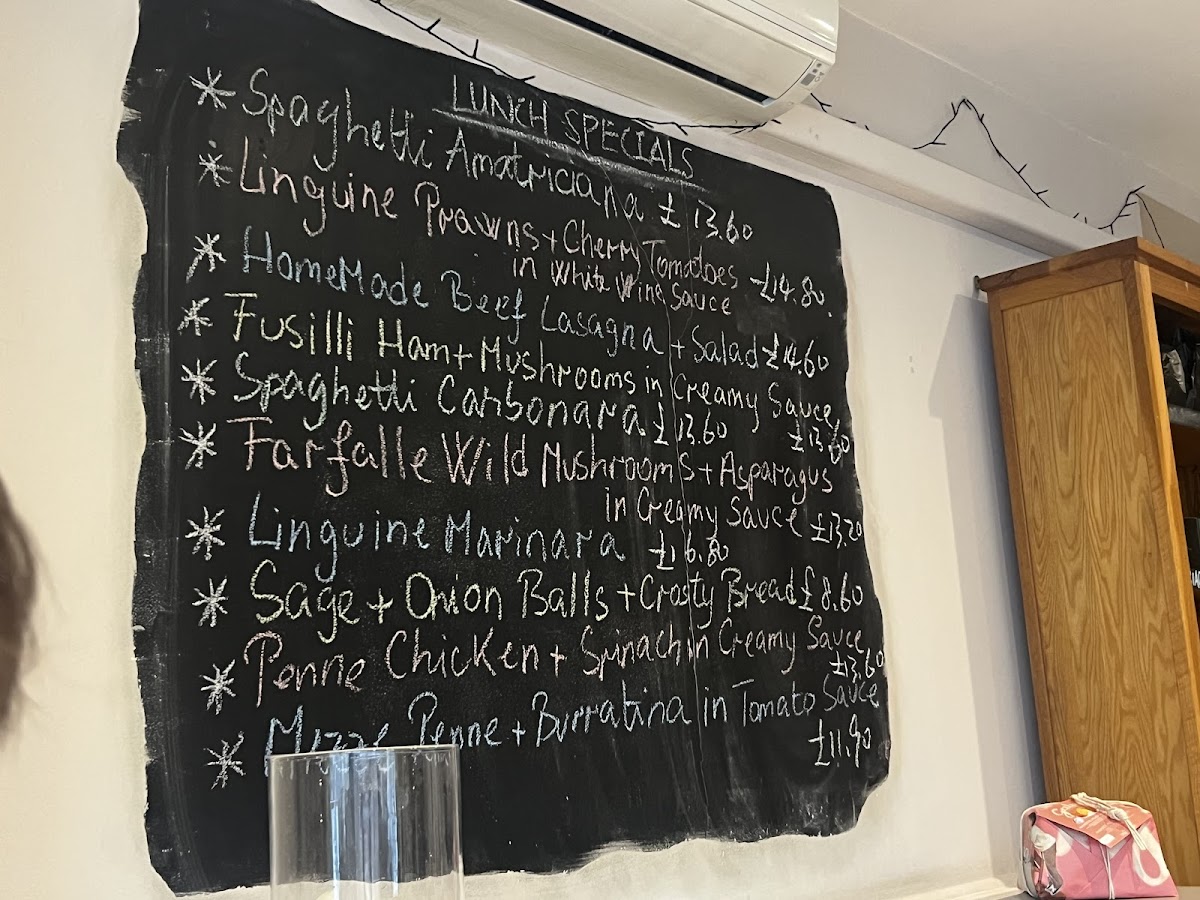 LUNCH SPECIALS
* Spaghetti Amatriciana £13.60
* Linguine Prawns + Cherry Tomatoes £14.80
in White Wine Sauce
* HomeMade Beef Lasagna + Salad £14.60
* Fusilli Ham + Mushrooms in Creamy Sauce
£13.60
* Spaghetti Carbonara £13.60
* Farfalle Wild Mushrooms + Asparagus
in Creamy Sauce £13.20
* Linguine Marinara £16.80
* Sage + Onion Balls + Crosty Bread £8.60
* Penne Chicken + Spinach in Creamy Sauce
£13.60
* Mezze Penne + Burratina in Tomato Sauce
£11.90